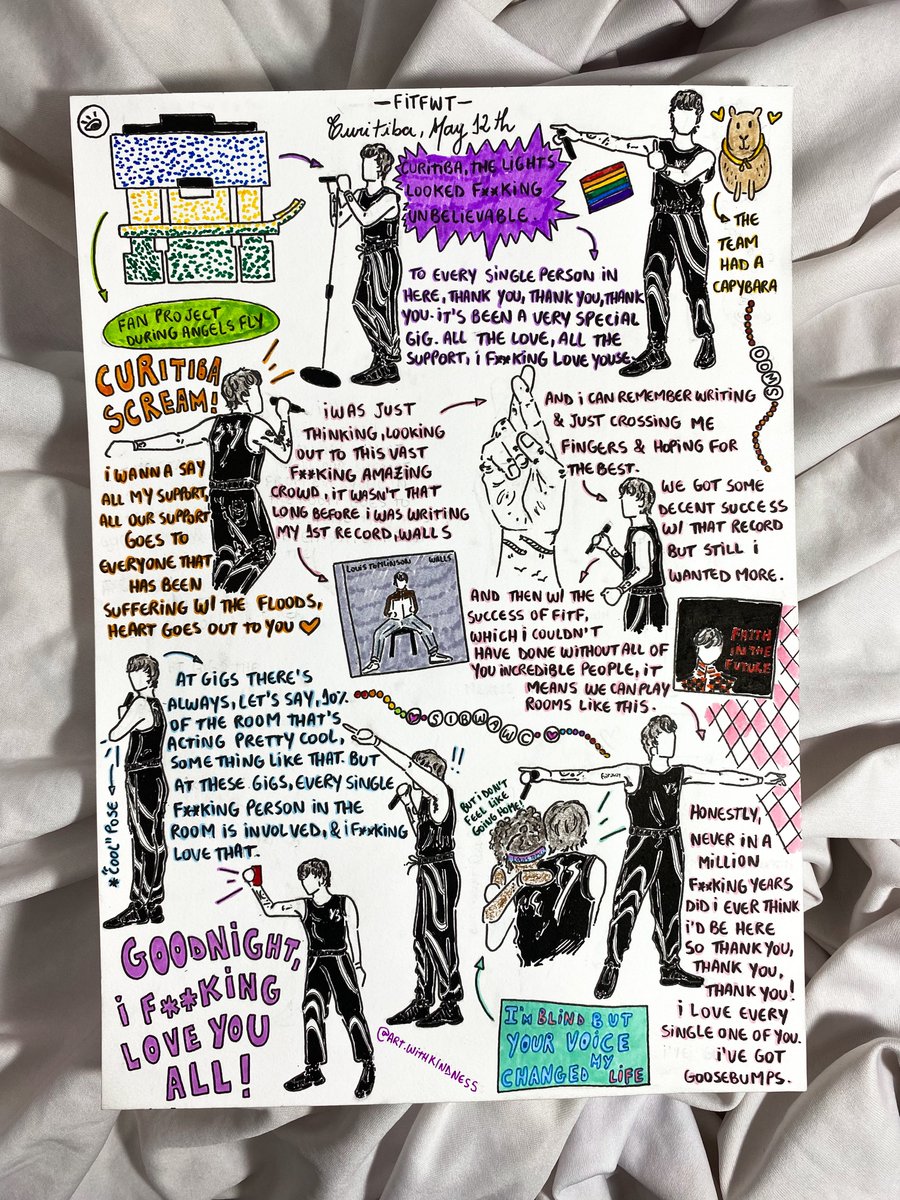 —FiTFWT—
Curitiba, May 12th
CURITIBA, THE LIGHTS
LOOKED F**KING
UNBELIEVABLE.
THE
TEAM
HAD A
CAPYBARA
FAN PROJECT
DURING ANGELS FLY
TO EVERY SINGLE PERSON IN
HERE, THANK YOU, THANK YOU, THANK
YOU. IT'S BEEN A VERY SPECIAL
GIG. ALL THE LOVE, ALL THE
SUPPORT, i F**KING LOVE YOUSE.
OOMS
CURITIBA
SCREAM!
i WANNA SAY
ALL MY SUPPORT,
ALL OUR SUPPORT
GOES TO
EVERYONE THAT
HAS BEEN
SUFFERING W/ THE FLOODS,
HEART GOES OUT TO YOU
i WAS JUST
THINKING, LOOKING
OUT TO THIS VAST
F**KING AMAZING
CROWD, IT WASN'T THAT
LONG BEFORE i WAS WRITING
MY 1ST RECORD, WALLS
AND i CAN REMEMBER WRITING
& JUST CROSSING ME
FINGERS & HOPING FOR
THE BEST.
WE GOT SOME
DECENT SUCCESS
W/ THAT RECORD
BUT STILL i
WANTED MORE.
LOUIS TOMLINSON WALLS
AND THEN W/ THE
SUCCESS OF FITF,
WHICH i COULDN'T
HAVE DONE WITHOUT ALL OF
YOU INCREDIBLE PEOPLE, IT
MEANS WE CAN PLAY
ROOMS LIKE THIS.
FAITH
IN THE
FUTURE
AT GIGS THERE'S
ALWAYS, LET'S SAY, 10%
OF THE ROOM THAT'S
ACTING PRETTY COOL,
SOMETHING LIKE THAT. BUT
AT THESE GIGS, EVERY SINGLE
F**KING PERSON IN THE
ROOM IS INVOLVED, & i F**KING
LOVE THAT.
*"COOL" POSE
SIBWAWC
!!
BUT i DON'T
FEEL LIKE
GOING HOME!
HONESTLY,
NEVER IN A
MILLION
F**KING YEARS
DID i EVER THINK
i'D BE HERE
SO THANK YOU,
THANK YOU,
THANK YOU!
i LOVE EVERY
SINGLE ONE OF YOU.
i'VE GOT
GOOSEBUMPS.
GOODNIGHT,
i F**KING
LOVE YOU
ALL!
I'M BLIND BUT
YOUR VOICE
CHANGED MY LIFE
@ART.WITHKINDNESS